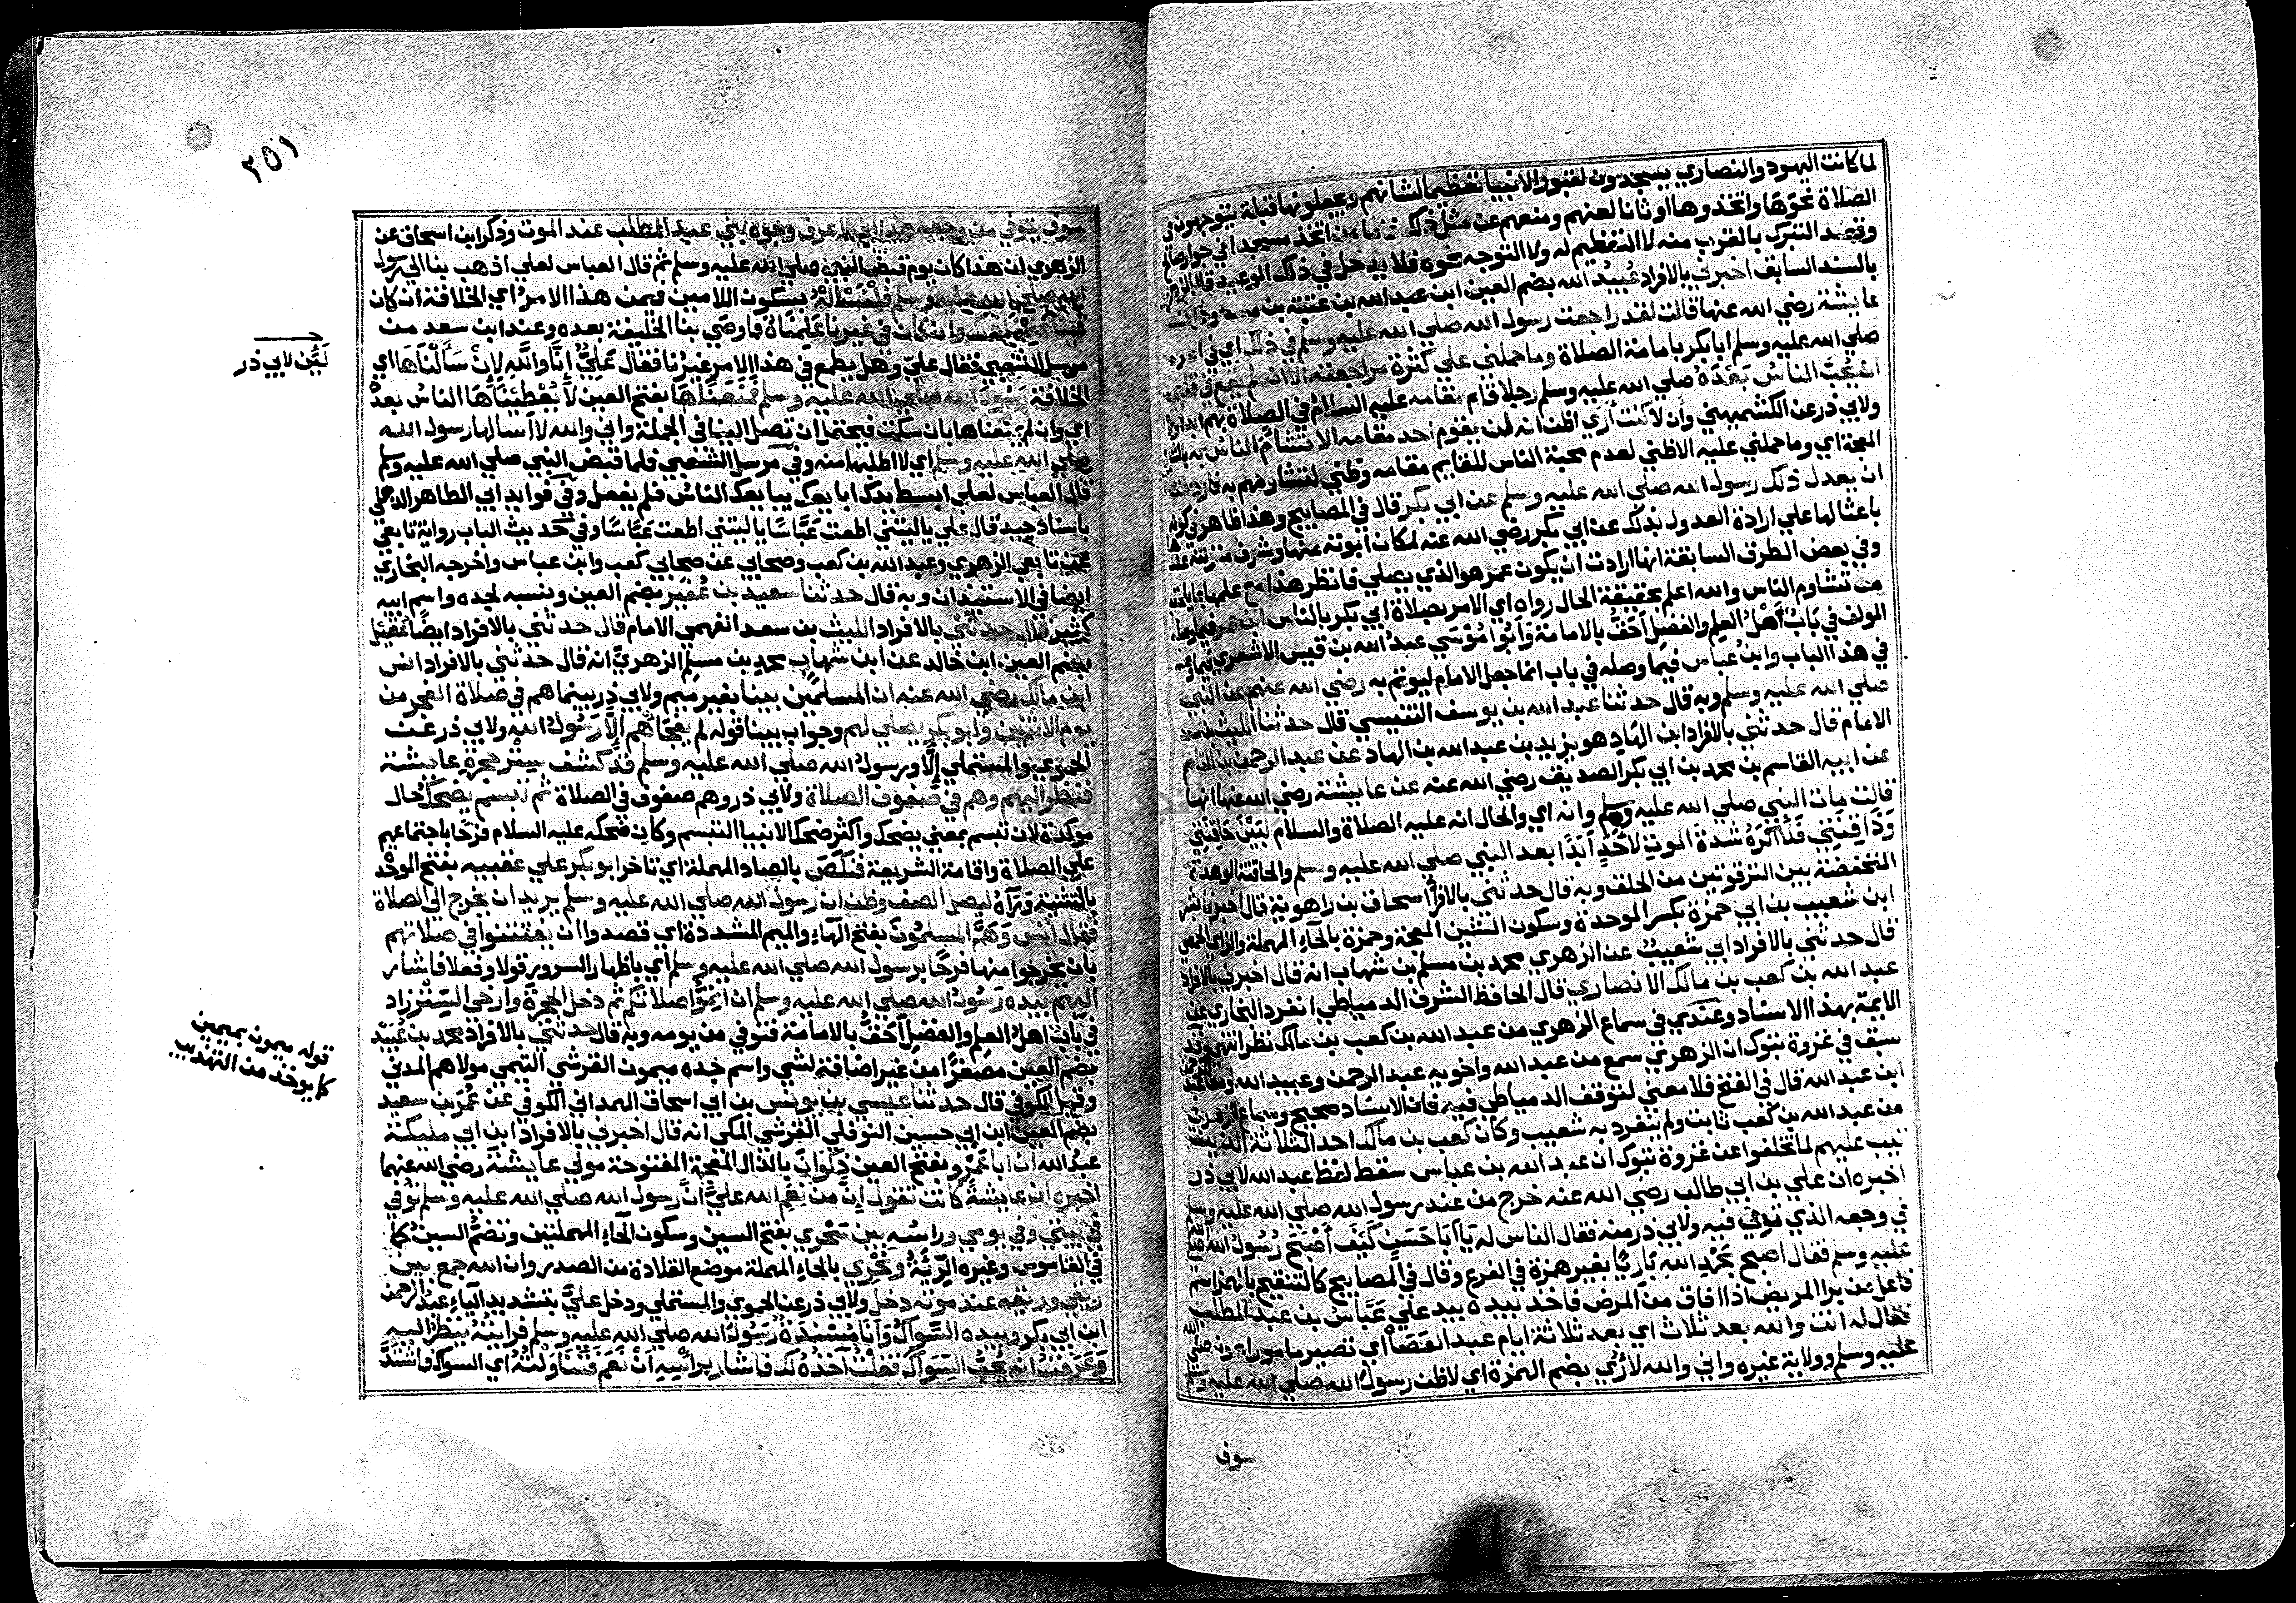 لما كانت اليهود والنصاري يسجدون لقبور الانبيا تعظيما لشانهم ويجعلونها قبلة يتوجهون في
الصلاة نحوها واتخذوها اوثانا لعنهم ومنعهم عن مثل ذلك فاما من اتخذ مسجدا في جوار صالح
وقصد التبرك بالقرب منه لا التعظيم له ولا التوجه نحوه فلا يدخل في ذلك الوعيد قال الزهري
بالسند السابق اخبرني بالافراد عُبيدُ الله بضم العين ابن عبد الله بن عتبة بن مسعود ان
عايشة رضي الله عنها قالت لقد راجعت رسول الله صلي الله عليه وسلم في ذلك اي في امره
صلي الله عليه وسلم ابا بكر بامامة الصلاة وما حملني علي كثرة مراجعته الا انه لم يقع في قلبي
ان يُحبَّ الناسُ بَعْدَهُ صلي الله عليه وسلم رجلا قام مقامه عليه السلام في الصلاة بهم ابدا
ولابي ذر عن الكشميهني وأن لا كنت أُري اظن انه لن يقوم احد مقامه الا تشاءم الناس به
المعجمة اي وما حملني عليه الا ظني لعدم محبة الناس للقايم مقامه وظني لتشاؤمهم به فاردت
ان يعدل ذلك رسول الله صلي الله عليه وسلم عن ابي بكر قال في المصابيح وهذا ظاهر في كونه
باعثا لها علي ارادة العدول بذلك عن ابي بكر رضي الله عنه لمكان ابوته عنها وشرف منزلته عنده
وفي بعض الطرق السابقة انها ارادت ان يكون عمر هو الذي يصلي فانظر هذا مع علمها بما يلحقه
من تشاوم الناس والله اعلم بحقيقة الحال رواه اي الامر بصلاة ابي بكر بالناس ابن عمر فيما وصله
المولف في باب أهلُ العلم والفضل أحقُّ بالامامة وأبُو مُوسَي عبدُ الله بن قيس الاشعري فيما وصله
في هذا الباب وابنُ عباس فيما وصله في باب انما جعل الامام ليوتم به رضي الله عنهم عن النبي
صلي الله عليه وسلم وبه قال حدثنا عبد الله بن يوسف التنيسي قال حدثنا الليث بن سعد
الامام قال حدثني بالافراد ابن الهَادِ هو يزيد بن عبد الله بن الهاد عن عبد الرحمن بن القاسم
عن ابيه القاسم بن محمد بن ابي بكر الصديق رضي الله عنه عن عايشة رضي الله عنها انها
قالت مات النبي صلي الله عليه وسلم وانه اي والحال انه عليه الصلاة والسلام لبَيْنَ حَاقِنَتِي
وَذَاقِنَتِي فَلَا أَكْرَهُ شدة الموت لأحَدٍ أبَدًا بعد النبي صلي الله عليه وسلم والحاقنة الوهدة
المنخفضة بين الترقوتين من الحلق وبه قال حدثني بالافراد اسحاق بن راهوية قال اخبرنا بشر
ابن شعيب بن ابي حمزة بكسر الموحدة وسكون الشين المعجمة وحمزة بالحاء المهملة والزاي الحمصي
قال حدثني بالافراد ابي شعيبٌ عن الزهري محمد بن مسلم بن شهاب انه قال اخبرني بالافراد
عبد الله بن كعب بن مالك الانصاري قال الحافظ الشرف الدمياطي انفرد البخاري عن
الايمة بهذا الاسناد وعندي في سماع الزهري من عبد الله بن كعب بن مالك نظر انتهي وقد
سبق في غزوة تبوك ان الزهري سمع من عبد الله واخويه عبد الرحمن وعبيد الله ومن عبد الرحمن
ابن عبد الله قال في الفتح فلا معني لتوقف الدمياطي فيه فان الاسناد صحيح وسماع الزهري
من عبد الله بن كعب ثابت ولم ينفرد به شعيب وكان كعب بن مالك احد الثلاثة الذين
تيب عليهم لما تخلفوا عن غزوة تبوك ان عبد الله بن عباس سقط لفظ عبد الله لابي ذر
اخبره ان علي بن ابي طالب رضي الله عنه خرج من عند رسول الله صلي الله عليه وسلم
في وجعه الذي توفي فيه ولابي ذر منه فقال الناس له يا أبَا حَسَنٍ كَيْفَ أَصْبَحَ رَسُولُ الله صلي الله
عليه وسلم فقال اصبح بحَمْدِ اللهِ بَارِيًا بغير همزة في الفرع وقال في المصابيح كالتنقيح بالهمز اسم
فاعل من برا المريض اذا افاق من المرض فاخذ بيده بيد علي عَبَّاسُ بن عبد المطلب
فقال له انت والله بعد ثلاث اي بعد ثلاثة ايام عبد العَصَا اي تصير مامورا بموته صلي الله
عليه وسلم وولاية غيره واني والله لأُرَي بضم الهمزة اي لاظن رسولَ الله صلي الله عليه وسلم
سوف
٣٥١
سوف يتوفي من وجعه هذا اني لاعرف وجوه بني عبد المطلب عند الموت وذكر ابن اسحاق عن
الزهري ان هذا كان يوم قبض النبي صلي الله عليه وسلم ثم قال العباس لعلي اذهب بنا الي رسول
الله صلي الله عليه وسلم فَلْنَسْأَلْهُ بسكون اللامين فيمن هذا الامرُ اي الخلافة ان كان
فينا علمنا ذلك وان كان في غيرنا عَلِمْنَاهُ فاوصي بنا الخليفة بعده وعند ابن سعد من
مرسل الشعبي فقال علي وهل يطمع في هذا الامر غيرنا فقال عَلِيٌّ إنَّا وَاللهِ لإن سَأَلْنَاهَا اي
الخلافة رَسُولَ الله صلي الله عليه وسلم فَمَنَعَنَاهَا بفتح العين لَا يُعْطِينَاهَا الناسُ بعدهُ
اي وان لم يمنعناها بان سكت فيحتمل ان تصل الينا في الجملة واني والله لا أسألها رسول الله
صلي الله عليه وسلم اي لا اطلبها منه وفي مرسل الشعبي فلما قبض النبي صلي الله عليه وسلم
قال العباس لعلي ابسط يدك ابايعك يبايعك الناس فلم يفعل وفي فوايد ابي الطاهر الذهلي
باسناد جيد قال علي ياليتني اطعت عَبَّاسًا ياليتني اطعت عَبَّاسًا وفي حديث الباب رواية تابعي
عن تابعي الزهري وعبد الله بن كعب وصحابي عن صحابي كعب وابن عباس واخرجه البخاري
ايضا في الاستيذان وبه قال حدثنا سعيد بن عُفَير بضم العين ونسبه لجده واسم ابيه
كثير قال حدثني بالافراد الليث بن سعد الفهمي الامام قال حدثني بالافراد ايضًا عُقيل
بضم العين ابن خالد عن ابن شهاب محمد بن مسلم الزهري انه قال حدثني بالافراد انس
ابن مالك رضي الله عنه ان المسلمين بينا بغير ميم ولابي ذر بينما هم في صلاة الفجر من
يوم الاثنين وابو بكر يصلي لهم وجواب بينا قوله لم يفجَأهُم إلَّا رَسُولُ الله ولابي ذر عن
الحموي والمستملي إلَّا ورسولُ الله صلي الله عليه وسلم قد كشف سِتْرَ حُجْرَةِ عايشة
فنظر اليهم وهم في صفوف الصلاة ولابي ذر وهم صفوف في الصلاة ثم تبسم يضحك حال
موكدة لان تبسم بمعني يضحك واكثر ضحك الانبيا التبسم وكان ضحكه عليه السلام فرَحًا باجتماعهم
علي الصلاة واقامة الشريعة فنَكَصَ بالصاد المهملة اي تاخر ابو بكر علي عقبيه بفتح الموحدة
بالتثنية ورآهُ ليصل الصف وظن ان رسول الله صلي الله عليه وسلم يريد ان يخرج الي الصلاة
فقال انس وَهَمَّ المسلمُونَ بفتح الهاءِ والميم المشددة اي قصدوا ان يفتتنوا في صلاتهم
بان يخرجوا منها فرحًا برسول الله صلي الله عليه وسلم اي باظهار السرور قولا وفعلا فاشار
اليهم بيده رَسُولُ الله صلي الله عليه وسلم ان اتِمُّوا صلاتكم ثم دخل الحجرة وارخي السِّتْرَ زاد
في باب اهلُ العلم والفضل أحقُّ بالامامة فتوفي من يومه وبه قال حدثني بالافراد محمد بن عُبيد
بضم العين مصغرًا من غير اضافة لشي واسم جده ميمون القرشي التيمي مولاهم المدني
وقيل الكوفي قال حدثنا عيسي بن يونس بن ابي اسحاق الهمداني الكوفي عن عُمَر بن سعيد
بضم العين ابن ابي حسين النوفلي القرشي المكي انه قال اخبرني بالافراد ابن ابي مليكة
عبدُ الله ان ابا عَمْرٍو بفتح العين ذكوانَ بالذال المعجمة المفتوحة مولي عايشة رضي الله عنها
اخبره ان عايشةَ كانت تقول إنَّ من نِعَمِ الله عليَّ أنَّ رسول الله صلي الله عليه وسلم تُوفي
في بيتي وفي يومي وراسُه بين سَحْرِي بفتح السين وسكون الحاء المهملتين وتضم السين كما
في القاموس وغيره الرِّئَةُ ونَحْرِي بالحاءِ المهملة موضع القلادة من الصدر وان الله جمع بين
ريقي وريقه عند موته دخل ولابي ذر عن الحموي والمستملي ودخل عليَّ بتشديد الياءِ عبدُ الرحمن
ابن ابي بكر وبيده السِّوَاكُ وأنَا مُسْنِدَةٌ رَسُولَ الله صلي الله عليه وسلم فرايتُهُ ينظرُ اليه
وَعَرَفْتُ انه يُحِبُّ السِّوَاكَ فقلتُ آخُذُهُ لك فاشار براسِهِ أنْ نَعَمْ فَتَنَاوَلْتُهُ اي السواك فاشتدَّ
لَئِن لابي ذر
قوله ميمون بميمين
كما يوخذ من التهذيب